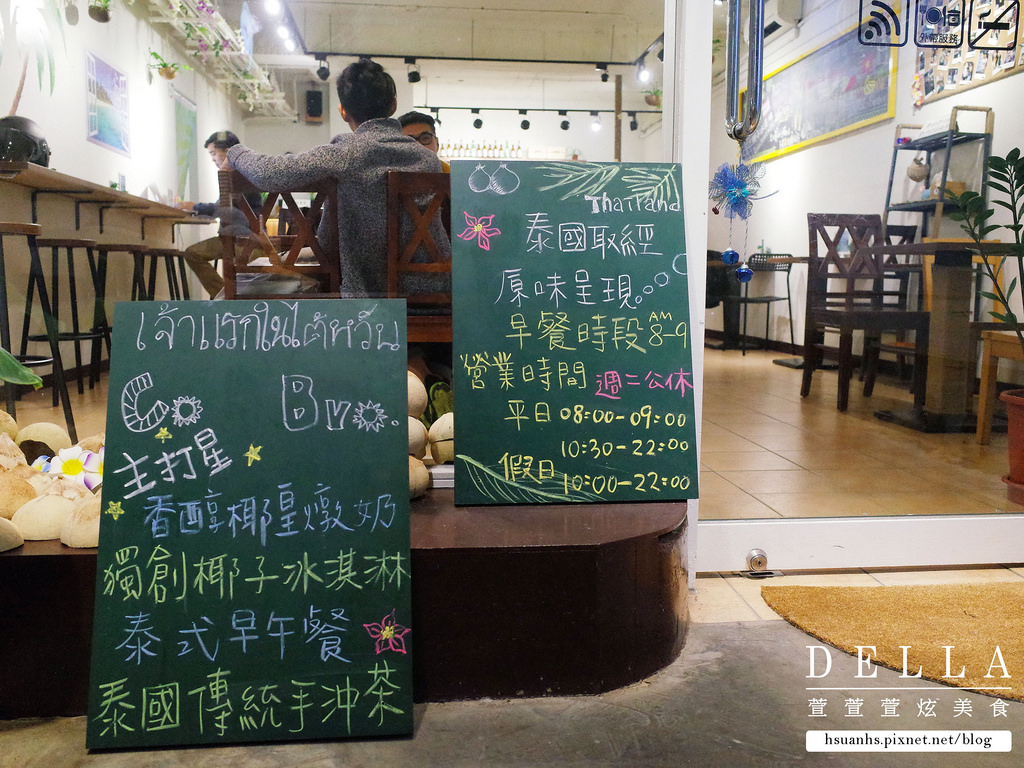 เจ้าแรกในไต้หวัน
Co Bvo.
主打星
香醇椰皇燉奶
獨創椰子冰淇淋
泰式早午餐
泰國傳統手沖茶
Thailand
泰國取經
原味呈現。。。
早餐時段 AM 8-9
營業時間 週二公休
平日 08:00-09:00
10:30-22:00
假日 10:00-22:00
外帶服務
DELLA
萱萱萱炫美食
hsuanhs.pixnet.net/blog